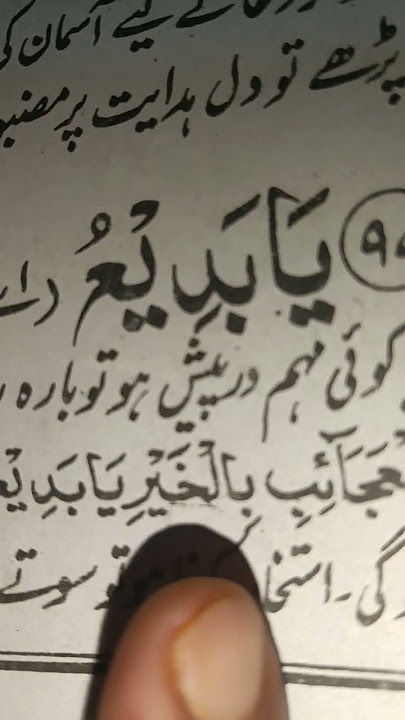 کے لیے آسمان کی
پڑھے تو دل ہدایت پر
یَا بَدِیْعُ (اے
کوئی مہم درپیش ہو تو بارہ
بِالْخَیْرِ یَا بَدِیْعُ
گی۔ تو سوتے